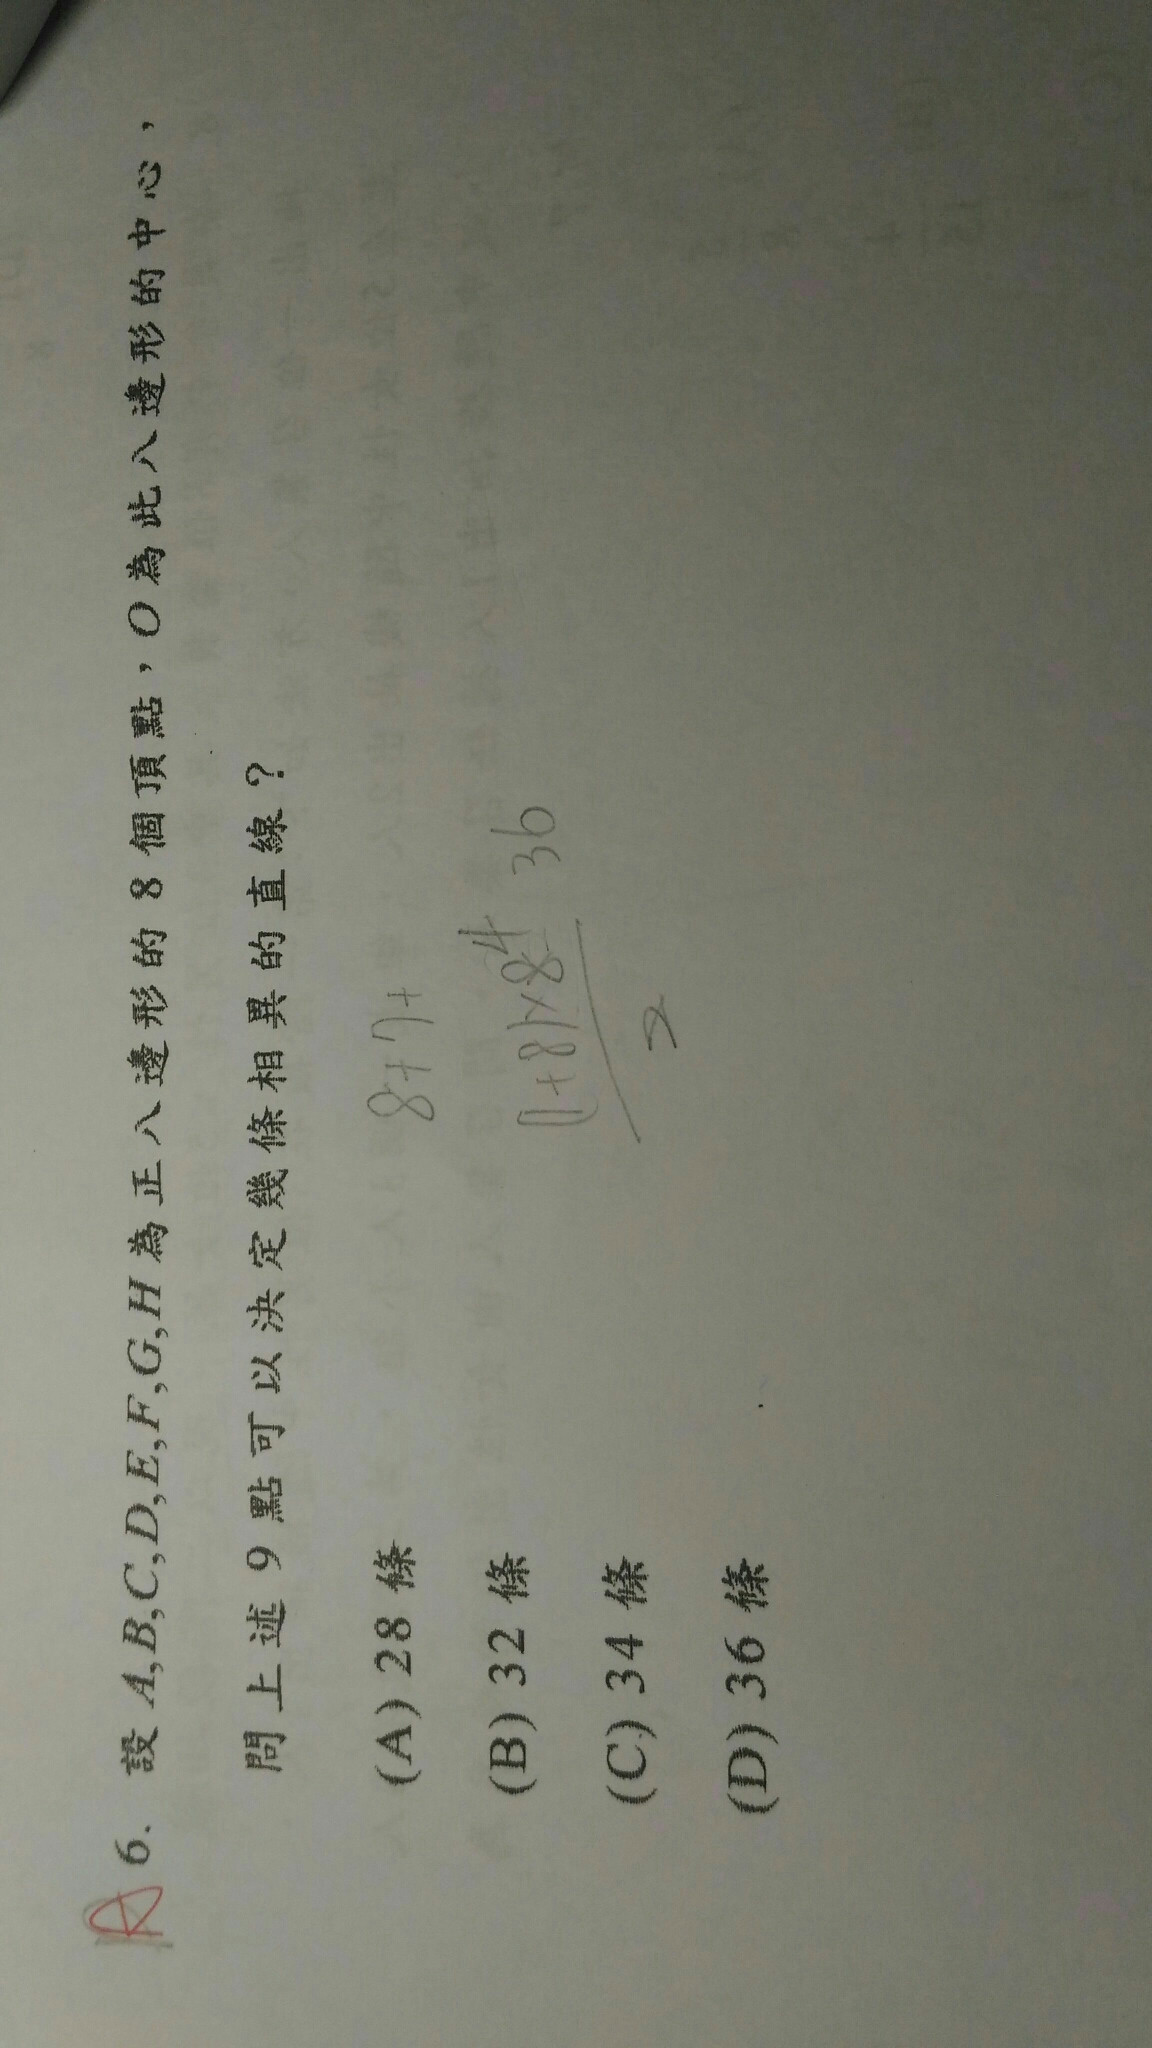 A 6. 設 A,B,C,D,E,F,G,H 為正八邊形的 8 個頂點，O 為此八邊形的中心，
問上述 9 點可以決定幾條相異的直線？
(A) 28 條
8+7+
(B) 32 條
(1+8)×8 4 36
2
(C) 34 條
(D) 36 條